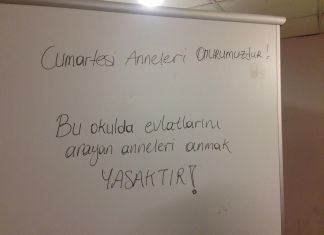 Cumartesi Anneleri Onurumuzdur!
Bu okulda evlatlarını
arayan anneleri anmak
YASAKTIR!